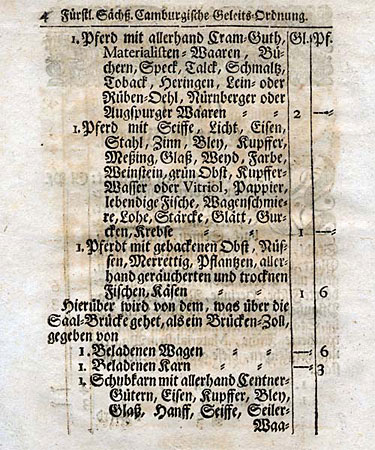 4 Fürstl. Sächß. Camburgische Geleits-Ordnung.
1. Pferd mit allerhand Cram-Guth, Gl. Pf.
Materialisten-Waaren, Bü-
chern, Speck, Talck, Schmaltz,
Toback, Heringen, Lein- oder
Rüben-Oehl, Nürnberger oder
Augspurger Waaren " " 2 —
1. Pferd mit Seiffe, Licht, Eisen,
Stahl, Zinn, Bley, Kupffer,
Meßing, Glaß, Weyd, Farbe,
Weinstein, grün Obst, Kupffer-
Wasser oder Vitriol, Pappier,
lebendige Fische, Wagenschmie-
re, Lohe, Stärcke, Glätt, Gur-
cken, Krebse " " 1 —
1. Pferdt mit gebackenen Obst, Nüß-
sen, Merrettig, Pflantzen, aller-
hand geräucherten und trocknen
Fischen, Käsen " " 1 6
Hierüber wird von dem, was über die
Saal-Brücke gehet, als ein Brücken-Zoll,
gegeben von
1. Beladenen Wagen " " — 6
1. Beladenen Karn " " — 3
1. Schubkarn mit allerhand Centner-
Gütern, Eisen, Kupffer, Bley,
Glaß, Hanff, Seiffe, Seiler-
Waa-